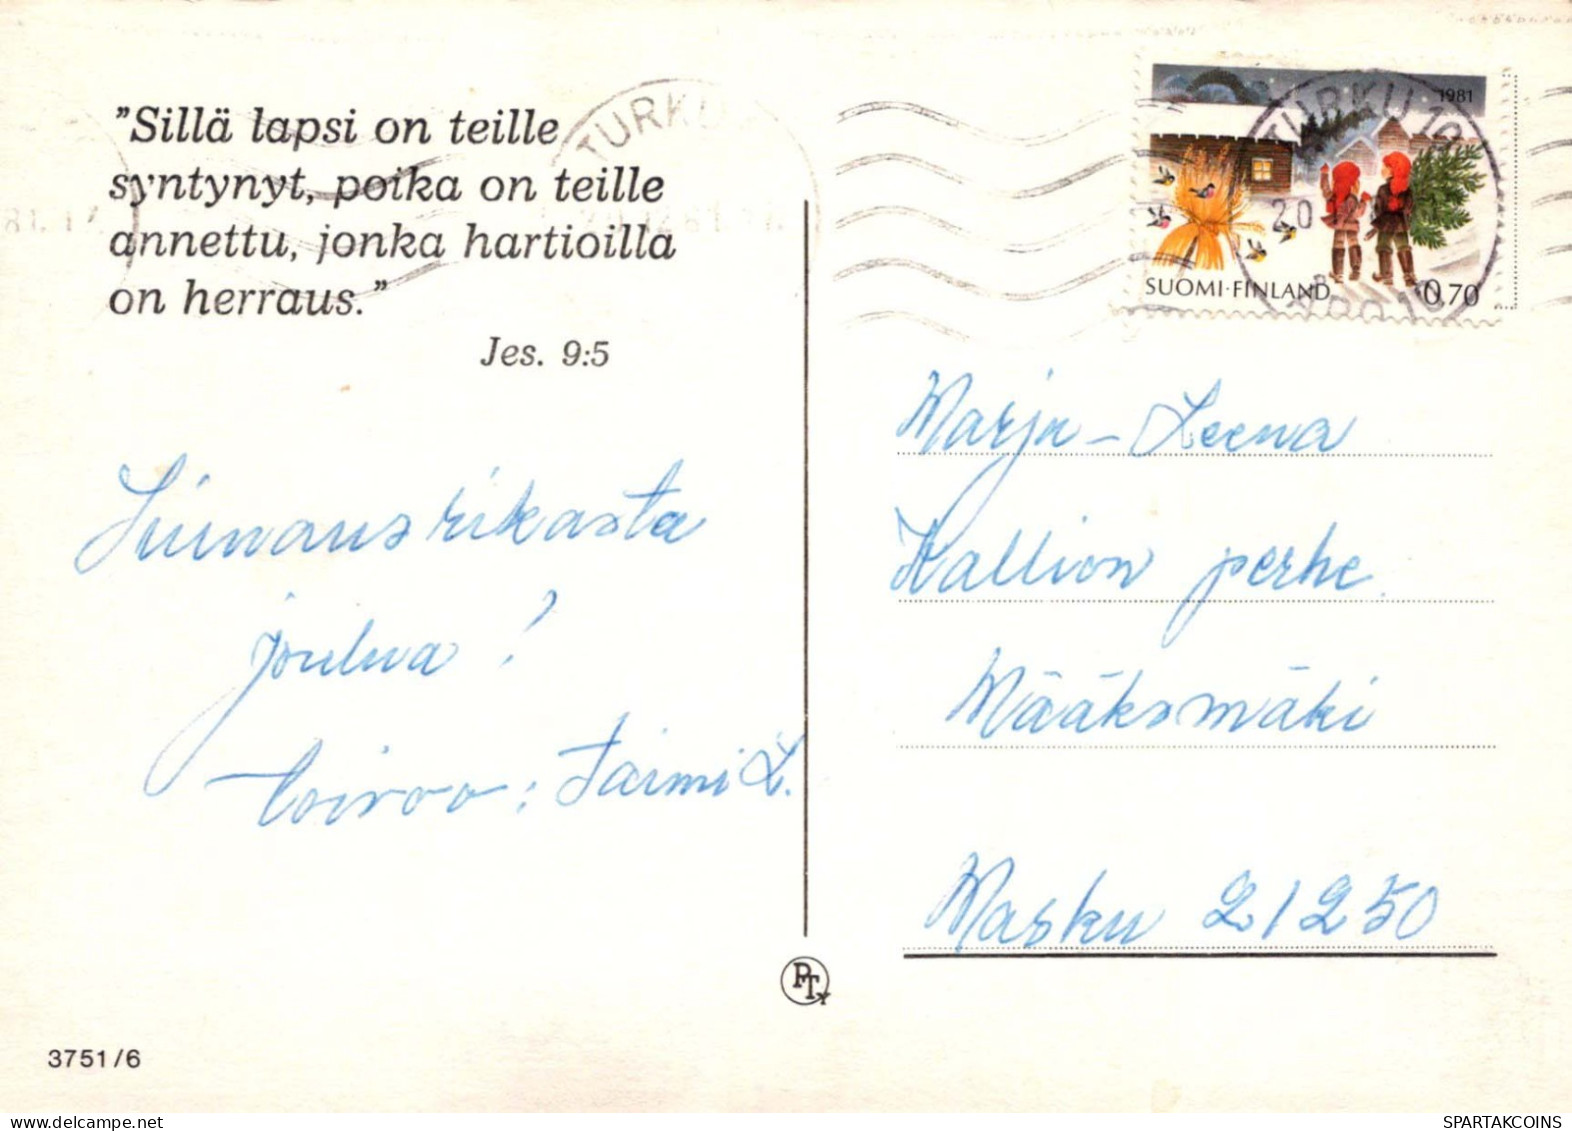 "Sillä lapsi on teille
syntynyt, poika on teille
annettu, jonka hartioilla
on herraus."
Jes. 9:5
Siunausrikasta
joulua!
toivoo: Taimi L.
3751/6
PTY
TURKU
1981
TURKU 10
20.12
SUOMI·FINLAND
0,70
Marja-Leena
Kallion perhe
Määksmäki
Masku 21250
SPARTAKCOINS